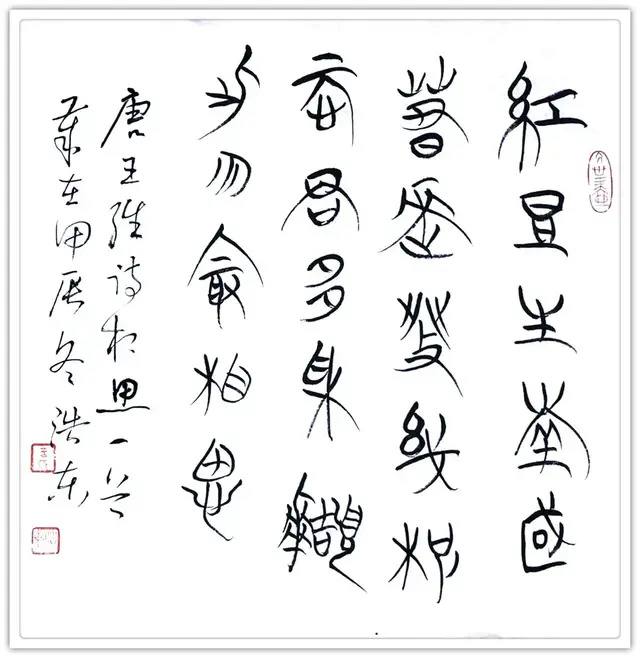 紅豆生南國
春來發幾枝
願君多采擷
此勿最相思
唐王維詩相思一首
歲在甲辰冬浩东